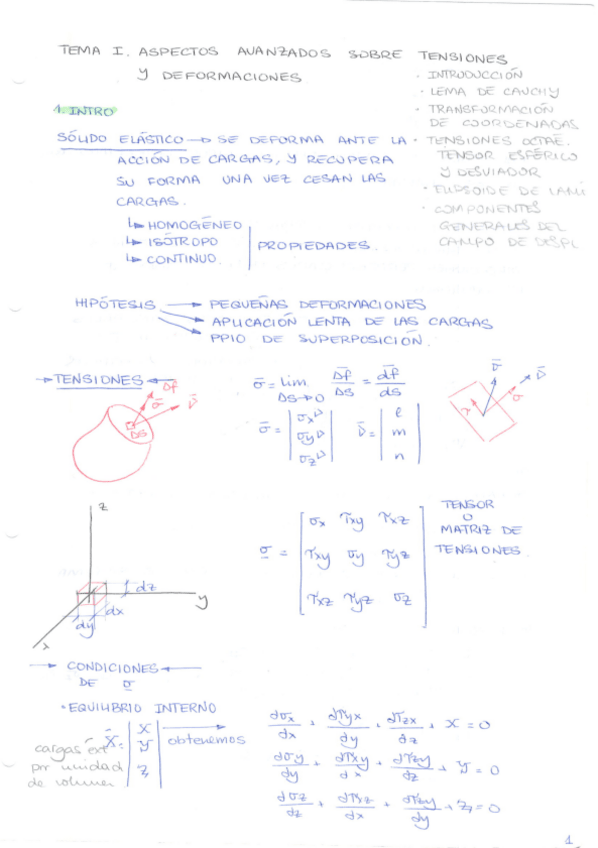 TEMA I. ASPECTOS AVANZADOS SOBRE TENSIONES
Y DEFORMACIONES
· INTRODUCCIÓN
· LEMA DE CAUCHY
· TRANSFORMACIÓN
DE COORDENADAS
· TENSIONES OCTAÉ.
TENSOR ESFÉRICO
Y DESVIADOR
· ELIPSOIDE DE LAMÉ
· COMPONENTES
GENERALES DEL
CAMPO DE DESPL
1. INTRO
SÓLIDO ELÁSTICO → SE DEFORMA ANTE LA
ACCIÓN DE CARGAS, Y RECUPERA
SU FORMA UNA VEZ CESAN LAS
CARGAS.
↳ HOMOGÉNEO
↳ ISÓTROPO
↳ CONTINUO.
PROPIEDADES.
HIPÓTESIS → PEQUEÑAS DEFORMACIONES
→ APLICACIÓN LENTA DE LAS CARGAS
→ PPIO DE SUPERPOSICIÓN.
→ TENSIONES ←
Δf̄
σ̄
ν̄
ΔS
σ̄ = lim ΔS→0 Δf̄/ΔS = df̄/dS
σ̄ = | σxν σyν σzν |
ν̄ = | l m n |
σ̄
ν̄
σ
z
y
x
dz
dx
dy
σ = [ σx τxy τxz
τxy σy τyz
τxz τyz σz ]
TENSOR
O
MATRIZ DE
TENSIONES
→ CONDICIONES ←
DE σ
· EQUILIBRIO INTERNO
X̄ = | X Y Z | → obtenemos
cargas ext
por unidad
de volumen
dσx/dx + dτyx/dy + dτzx/dz + X = 0
dσy/dy + dτxy/dx + dτzy/dz + Y = 0
dσz/dz + dτxz/dx + dτzy/dy + Z = 0
1